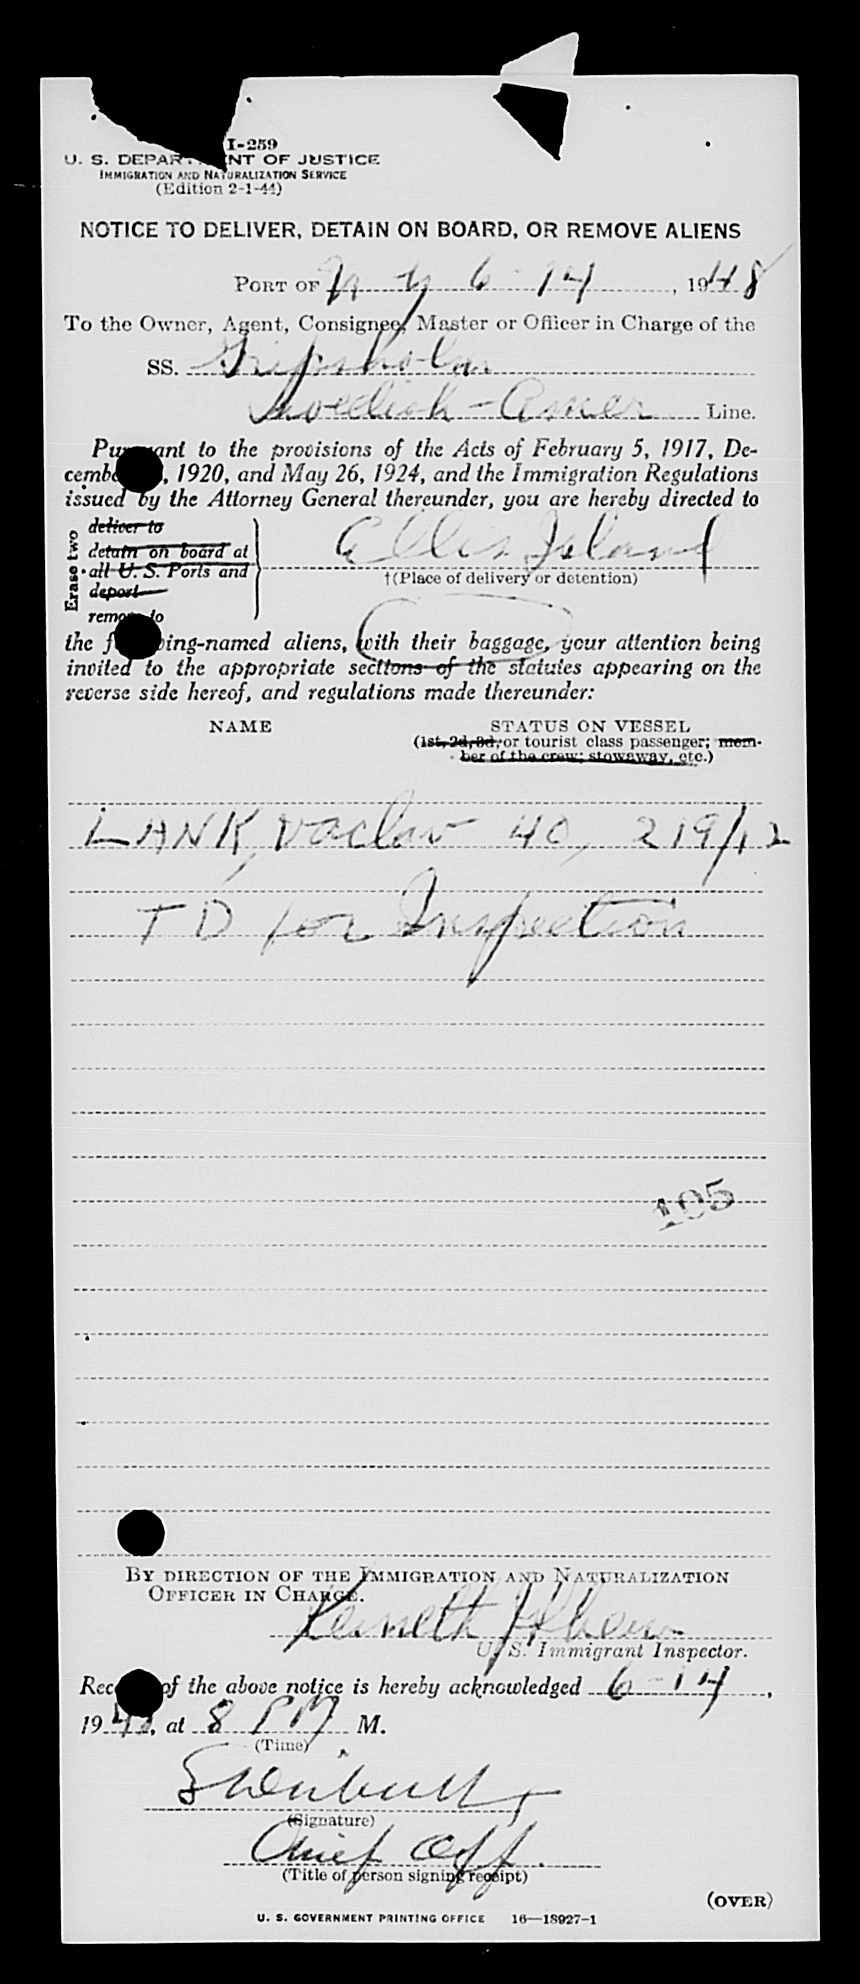 I-259
U. S. DEPARTMENT OF JUSTICE
IMMIGRATION AND NATURALIZATION SERVICE
(Edition 2-1-44)
NOTICE TO DELIVER, DETAIN ON BOARD, OR REMOVE ALIENS
PORT OF N Y 6-14, 1948
To the Owner, Agent, Consignee, Master or Officer in Charge of the
SS. Gripsholm
Swedish-Amer Line.
Pursuant to the provisions of the Acts of February 5, 1917, De-
cember , 1920, and May 26, 1924, and the Immigration Regulations
issued by the Attorney General thereunder, you are hereby directed to
Erase two
deliver to
detain on board at
all U. S. Ports and
deport
remove to
Ellis Island
†(Place of delivery or detention)
the following-named aliens, with their baggage, your attention being
invited to the appropriate sections of the statutes appearing on the
reverse side hereof, and regulations made thereunder:
NAME STATUS ON VESSEL
(1st, 2d, 3d, or tourist class passenger; mem-
ber of the crew; stowaway, etc.)
LANK, Vaclav 40, 219/12
TD for Inspection
195
BY DIRECTION OF THE IMMIGRATION AND NATURALIZATION
OFFICER IN CHARGE.
Kenneth
U. S. Immigrant Inspector.
Receipt of the above notice is hereby acknowledged 6-14,
1948, at 8 PM M.
(Time)
(Signature)
Chief Off.
(Title of person signing receipt)
(OVER)
U. S. GOVERNMENT PRINTING OFFICE 16—18927-1